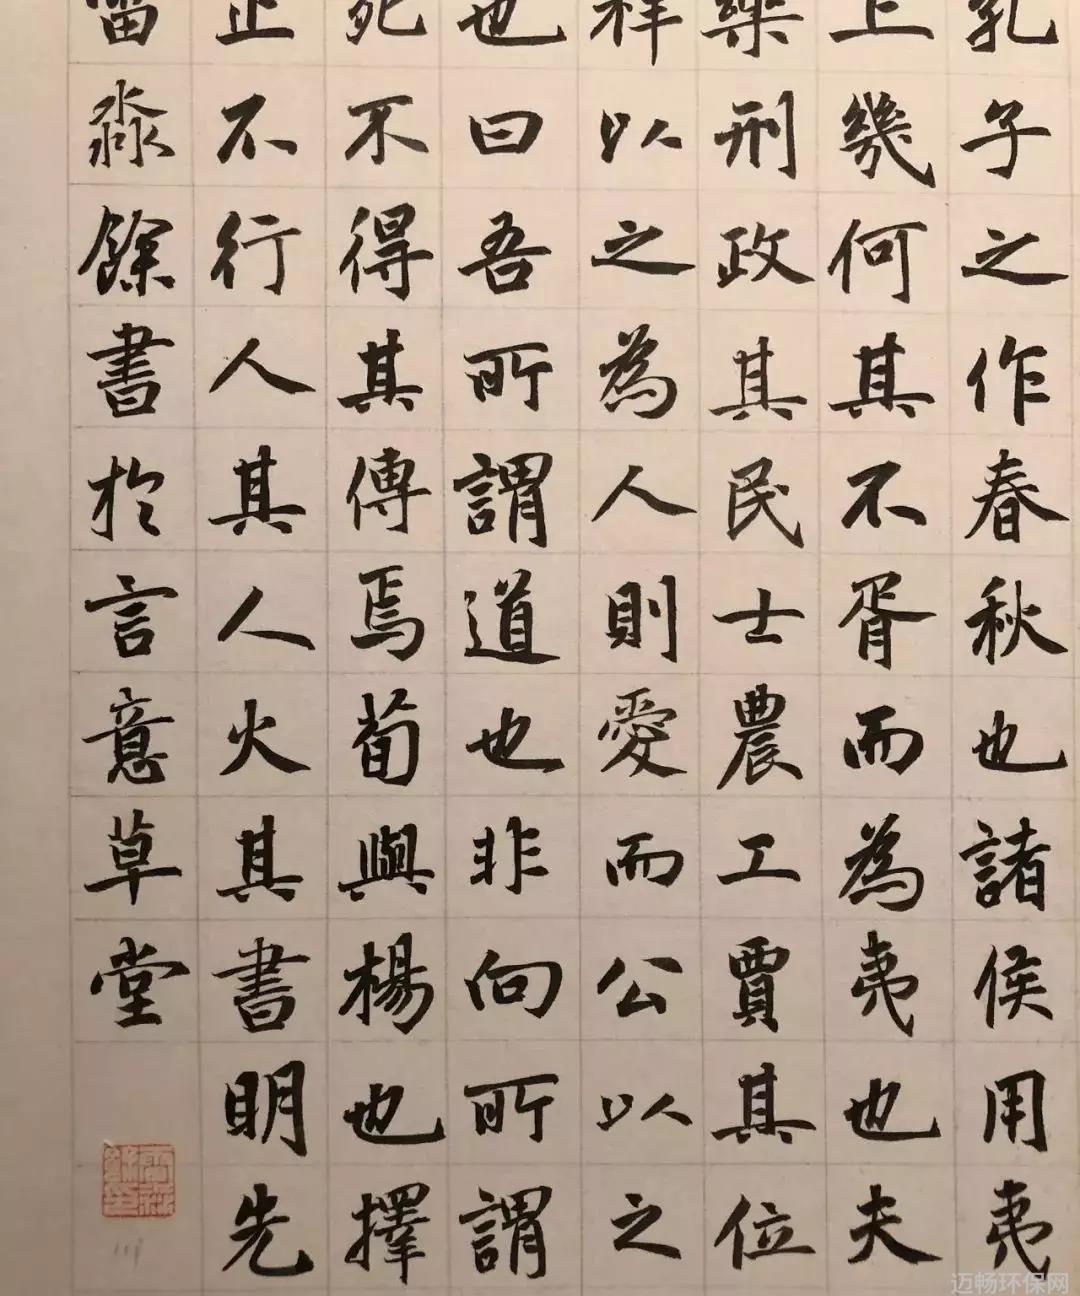 孔子之作春秋也諸侯用夷
上幾何其不胥而為夷也夫
樂刑政其民士農工賈其位
祥以之為人則愛而公以之
也曰吾所謂道也非向所謂
死不得其傳焉荀與楊也擇
止不行人其人火其書明先
雷淼餘書於言意草堂
迈畅环保网